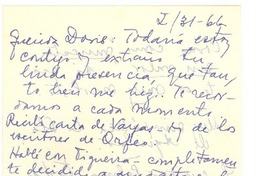 I/31-66
Querida Doris: Todavía estoy
contigo y extraño tu
linda presencia, que tan
to bien me hizo. Te recor
damos a cada momento
Recibí carta de Vargas y de los
escritores de Orfeo.
Hablé con Figueroa - completamen
te decidido a